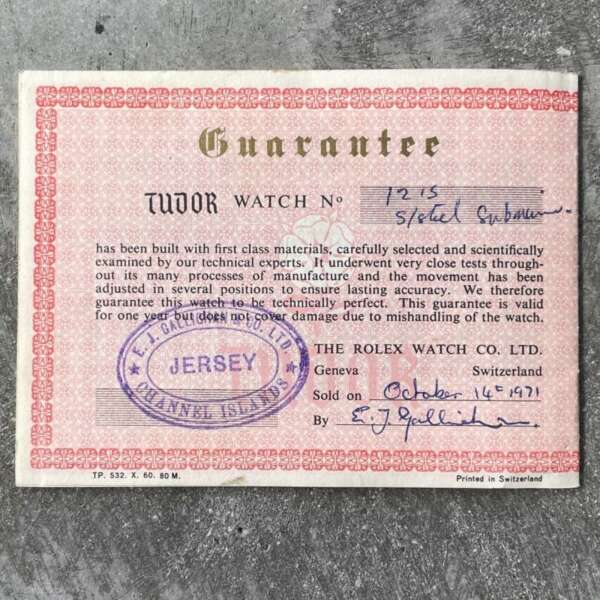 Guarantee
TUDOR WATCH Nº 1215
S/steel Submarin.
has been built with first class materials, carefully selected and scientifically
examined by our technical experts. It underwent very close tests through-
out its many processes of manufacture and the movement has been
adjusted in several positions to ensure lasting accuracy. We therefore
guarantee this watch to be technically perfect. This guarantee is valid
for one year but does not cover damage due to mishandling of the watch.
E. J. GALLICHAN & CO. LTD.
JERSEY
CHANNEL ISLANDS
THE ROLEX WATCH CO. LTD.
Geneva Switzerland
Sold on October 14th 1971
By E. J. Gallichan.
TUDOR
TP. 532. X. 60. 80 M.
Printed in Switzerland